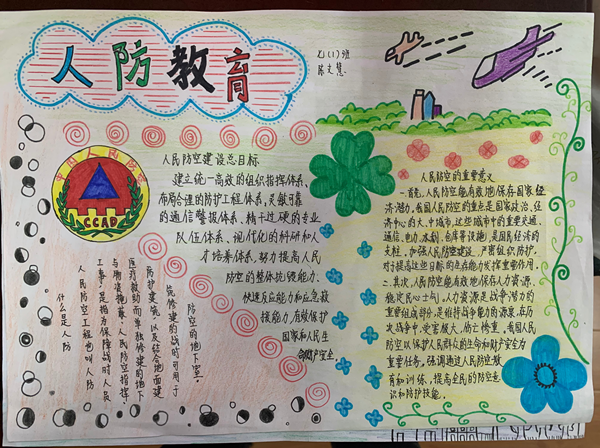 人防教育
七(1)班
陈文慧.
中国人民防空
CCAD
人民防空建设总目标
建立统一高效的组织指挥体系、
布局合理的防护工程体系、灵敏可靠
的通信警报体系、精干过硬的专业
队伍体系、现代化的科研和人
才培养体系,努力提高人民
防空的整体抗毁能力、
快速反应能力和应急救
援能力,有效保护
国家和人民生
命财产安全.
什么是人防
人民防空工程也叫人防
工事,是指为保障战时人员
与物资掩蔽、人民防空指挥、
医疗救助而单独修建的地下
防护建筑,以及结合地面建
筑修建的战时可用于
防空的地下室.
人民防空的重要意义
一首先,人民防空能有效地保存国家经
济潜力,我国人民防空的重点是国家政治、经
济中心的大、中城市,这些城市中的重要交通、
通信、电力、水利、仓库等设施,是国民经济的
支柱,加强人民防空建设,严密组织防护,
对于提高这些目标的生存能力发挥重要作用.
二其次,人民防空能有效地保存人力资源,
稳定民心士气。人力资源是战争潜力的
重要组成部分,是维持战争能力的源泉,在历
次战争中,受害最大,伤亡惨重,我国人民
防空以保护人民群众的生命和财产安全为
重要任务,强调通过人民防空教
育和训练,提高全民的防空意
识和防护技能.